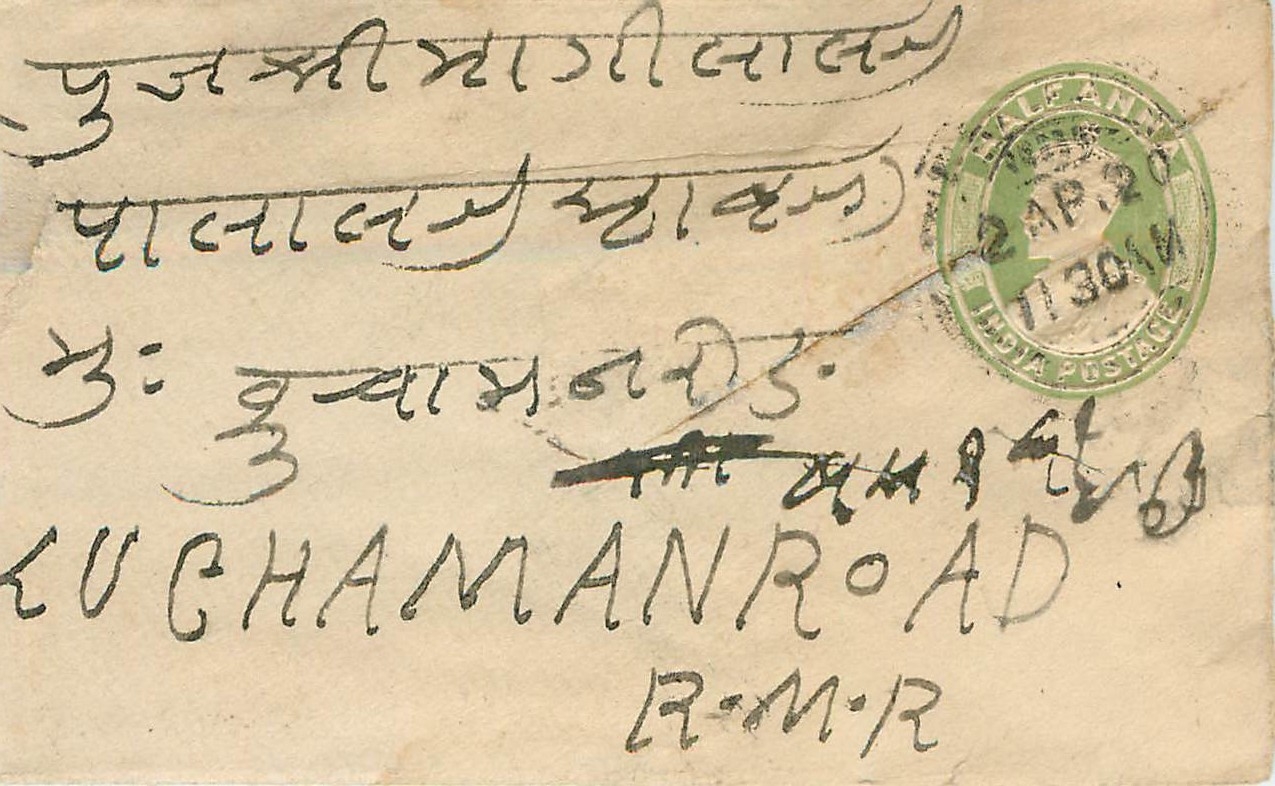 पुज श्री मागीलालजी
पालालजी
HALF ANNA
2 AP. 20
11 30 AM
INDIA POSTAGE
मु: कुचामन रोड
KUCHAMANROAD
R.M.R